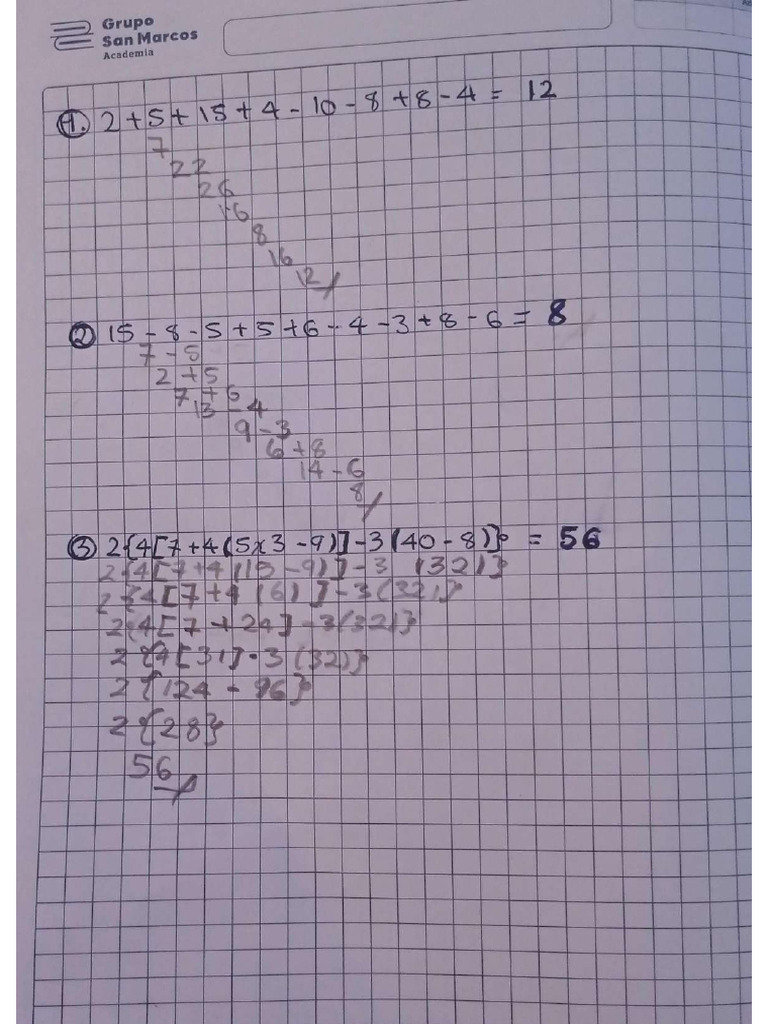 Grupo
San Marcos
Academia
1. 2 + 5 + 15 + 4 - 10 - 8 + 8 - 4 = 12
7
22
26
16
8
16
12
2 15 - 8 - 5 + 5 + 6 - 4 - 3 + 8 - 6 = 8
7 - 5
2 + 5
7 + 6
13 - 4
9 - 3
6 + 8
14 - 6
8
3 2{4[7+4(5x3-9)]-3(40-8)} = 56
2{4[7+4(15-9)]-3(32)}
2{4[7+4(6)]-3(32)}
2{4[7+24]-3(32)}
2{4[31]-3(32)}
2{124-96}
2{28}
56